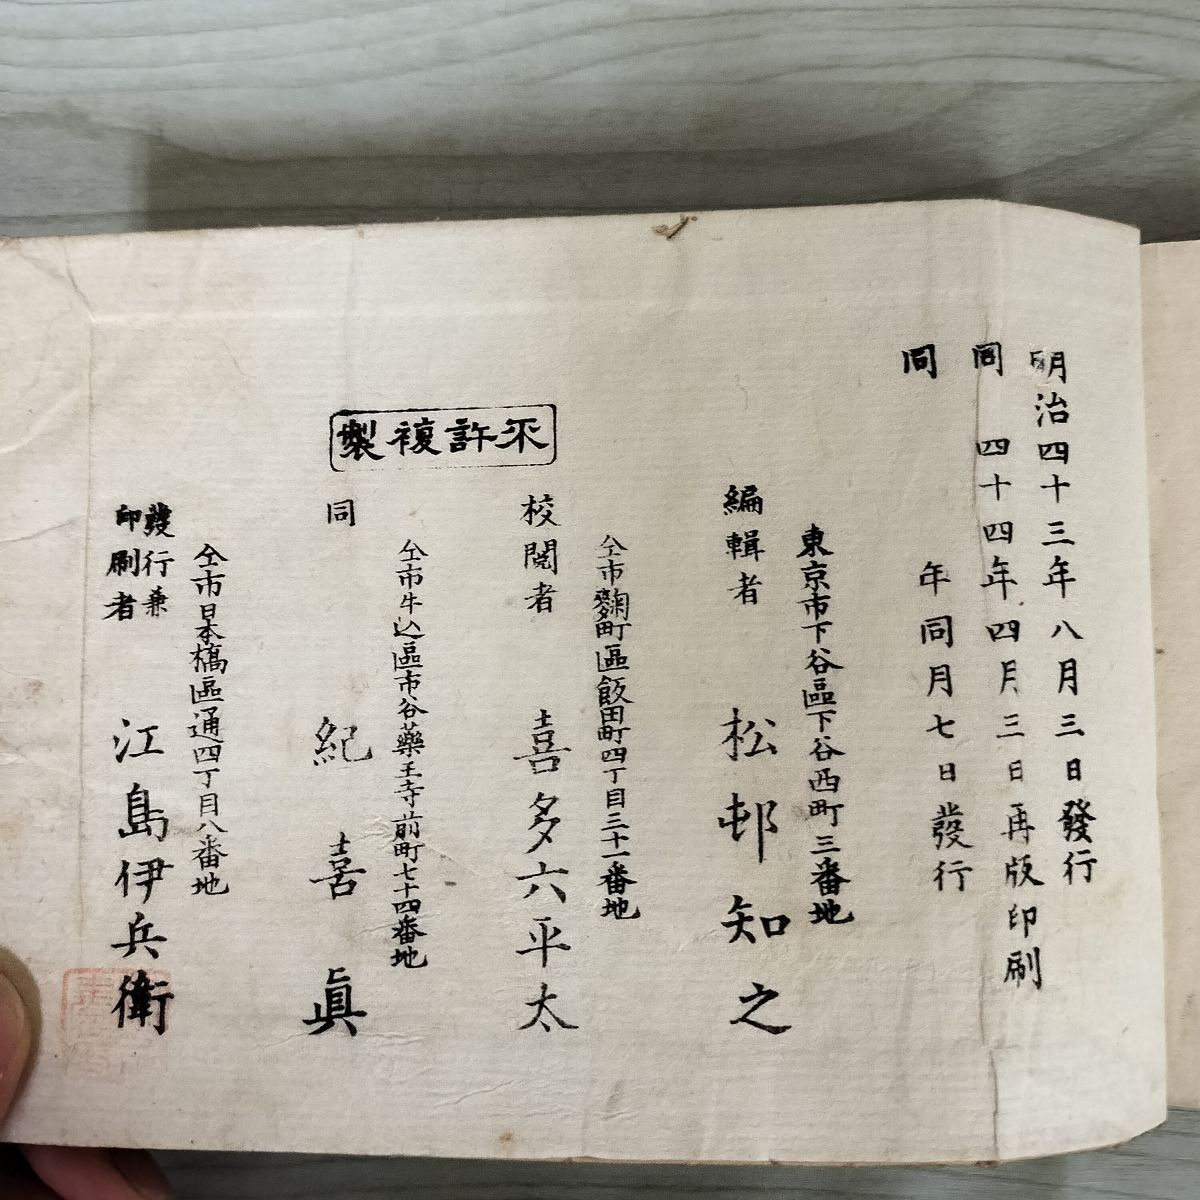 明治四十三年八月三日發行
同四十四年四月三日再版印刷
同年同月七日發行
東京市下谷區下谷西町三番地
編輯者 松邨知之
仝市麴町區飯田町四丁目三十一番地
校閲者 喜多六平太
仝市牛込區市谷藥王寺前町七十四番地
同 紀喜眞
不許複製
仝市日本橋區通四丁目八番地
發行兼
印刷者 江島伊兵衛